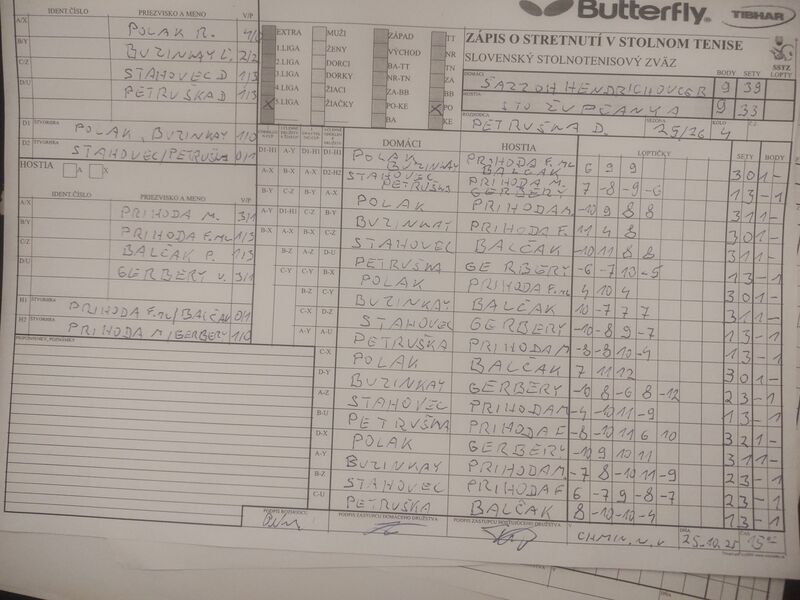 Butterfly
TIBHAR
ZÁPIS O STRETNUTÍ V STOLNOM TENISE
SLOVENSKÝ STOLNOTENISOVÝ ZVÄZ
SSTZ
LOPTY
IDENT.ČÍSLO PRIEZVISKO A MENO V/P
A/X POLAK R. 4/0
B/Y BUZINKAY Ľ. 2/2
C/Z STAHOVEC D 1/3
D/U PETRUŠKA D 1/3
D1 ŠTVORHRA POLAK, BUZINKAY 1/0
D2 ŠTVORHRA STAHOVEC/PETRUŠKA 0/1
EXTRA MUŽI ZÁPAD TT
1.LIGA ŽENY VÝCHOD NR
2.LIGA DORCI BA-TT TN
3.LIGA DORKY NR-TN ZA
4.LIGA ŽIACI ZA-BB BB
X 5.LIGA ŽIAČKY PO-KE X PO
BA KE
DOMÁCI ŠAZZOH HENDRICHOVCE R BODY 9 SETY 39
HOSTIA STO ŽUPČANY A 9 33
ROZHODCA PETRUŠKA D. SEZÓNA 25/26 KOLO 4
HOSTIA A X
IDENT.ČÍSLO PRIEZVISKO A MENO V/P
A/X PRIHODA M. 3/1
B/Y PRIHODA F. ML 1/3
C/Z BALČAK P. 1/3
D/U GERBERY V. 3/1
H1 ŠTVORHRA PRIHODA F. ML/BALČAK 0/1
H2 ŠTVORHRA PRIHODA M/GERBERY 1/0
PRIPOMIENKY, POZNÁMKY
DOMÁCI HOSTIA LOPTIČKY SETY BODY
POLAK BUZINKAY PRIHODA F. ML BALČAK 6 9 9 3 0 1 -
STAHOVEC PETRUŠKA PRIHODA M. GERBERY 7 -8 -9 -6 1 3 - 1
POLAK PRIHODA M -10 9 8 8 3 1 1 -
BUZINKAY PRIHODA F. 11 4 8 3 0 1 -
STAHOVEC BALČAK -10 11 8 8 3 1 1 -
PETRUŠKA GERBERY -6 -7 10 -5 1 3 - 1
POLAK PRIHODA F. ML 4 10 4 3 0 1 -
BUZINKAY BALČAK 10 -7 7 7 3 1 1 -
STAHOVEC GERBERY -10 -8 9 -7 1 3 - 1
PETRUŠKA PRIHODA M -8 -8 10 -4 1 3 - 1
C-X POLAK BALČAK 7 11 12 3 0 1 -
D-Y BUZINKAY GERBERY -10 8 -6 8 -12 2 3 - 1
A-Z STAHOVEC PRIHODA M -4 -10 11 -9 1 3 - 1
B-U PETRUŠKA PRIHODA F -8 -10 11 6 10 3 2 1 -
D-X POLAK GERBERY -10 9 10 11 3 1 1 -
A-Y BUZINKAY PRIHODA M. -7 8 -10 11 -9 2 3 - 1
B-Z STAHOVEC PRIHODA F 6 -7 9 -8 -7 2 3 - 1
C-U PETRUŠKA BALČAK 8 -10 -10 -4 1 3 - 1
PODPIS ROZHODCU
PODPIS ZÁSTUPCU DOMÁCEHO DRUŽSTVA
PODPIS ZÁSTUPCU HOSŤUJÚCEHO DRUŽSTVA
V CHMIN. N. V DŇA 25.10.25 ČAS 15